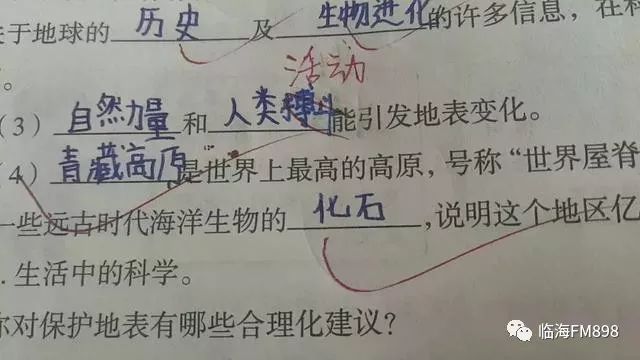 于地球的 历史 及 生物进化 的许多信息，在科
。
活动
（3） 自然力量 和 人类搏斗 能引发地表变化。
（4） 青藏高原 是世界上最高的高原，号称“世界屋脊
一些远古时代海洋生物的 化石 ，说明这个地区亿
.生活中的科学。
你对保护地表有哪些合理化建议？
临海FM898